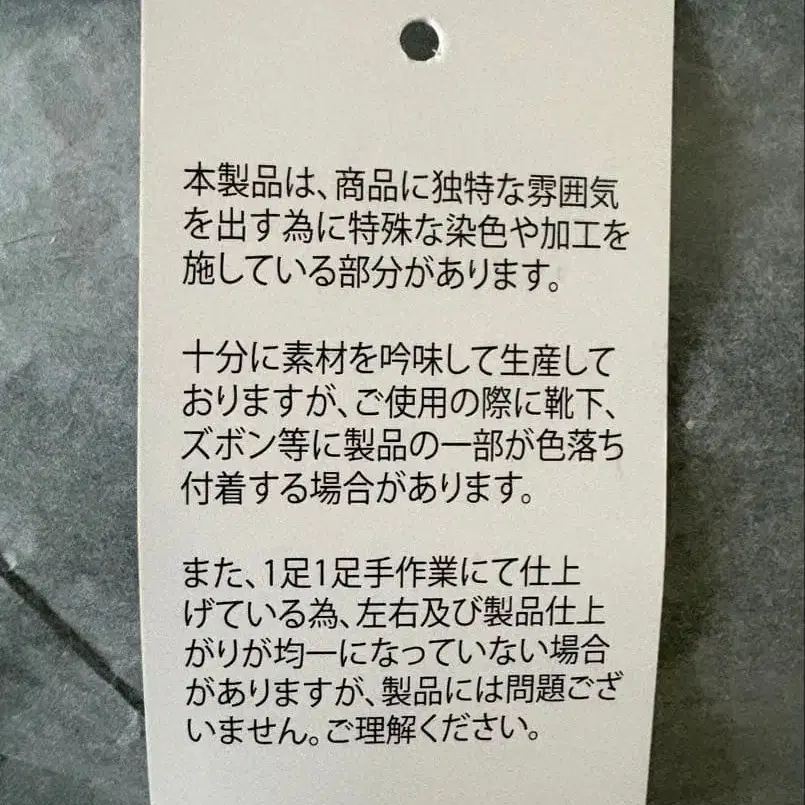 本製品は、商品に独特な雰囲気
を出す為に特殊な染色や加工を
施している部分があります。
十分に素材を吟味して生産して
おりますが、ご使用の際に靴下、
ズボン等に製品の一部が色落ち
付着する場合があります。
また、1足1足手作業にて仕上
げている為、左右及び製品仕上
がりが均一になっていない場合
がありますが、製品には問題ござ
いません。ご理解ください。